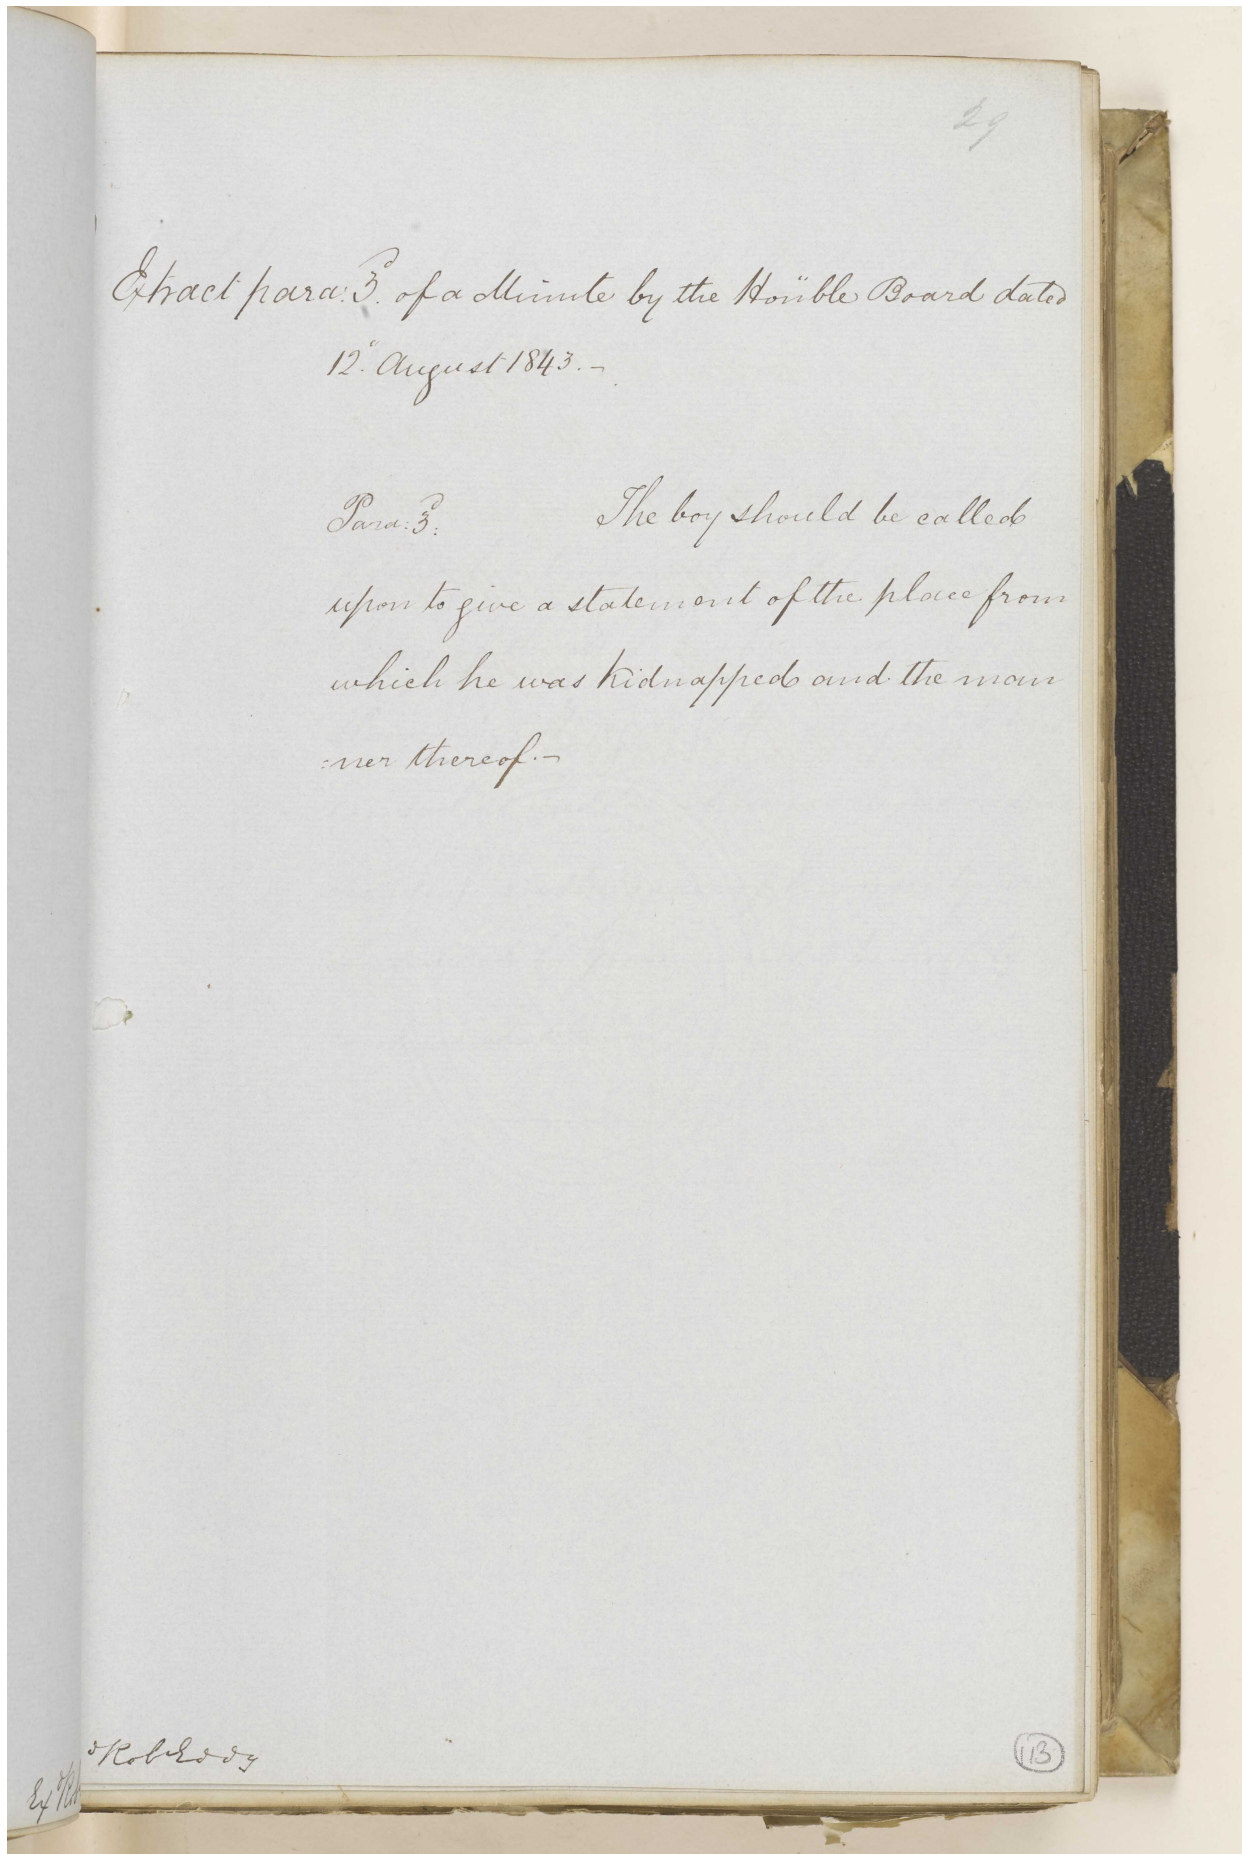 29
Extract para: 3d. of a Minute by the Hon'ble Board dated
12th August 1843. -
Para: 3d: The boy should be called
upon to give a statement of the place from
which he was kidnapped and the man
:ner thereof. -
113